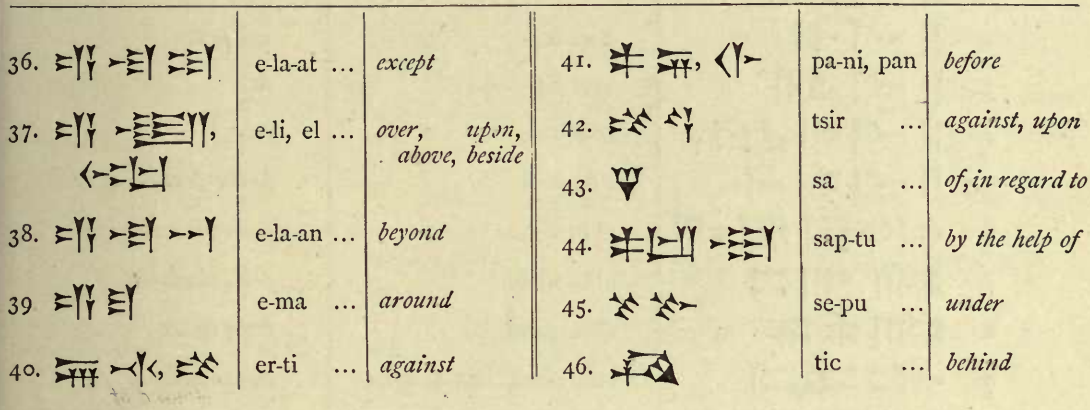 36. 𒂊 𒆷 𒀜 e-la-at ... except
37. 𒂊 𒇷, e-li, el ... over, upon,
above, beside
38. 𒂊 𒆷 𒀭 e-la-an ... beyond
39 𒂊 𒈠 e-ma ... around
40. 𒅕 𒋾, er-ti ... against
41. 𒉺 𒉌, 𒅆 pa-ni, pan before
42. tsir ... against, upon
43. 𒃻 sa ... of, in regard to
44. sap-tu ... by the help of
45. 𒊺 𒁍 se-pu ... under
46. tic ... behind